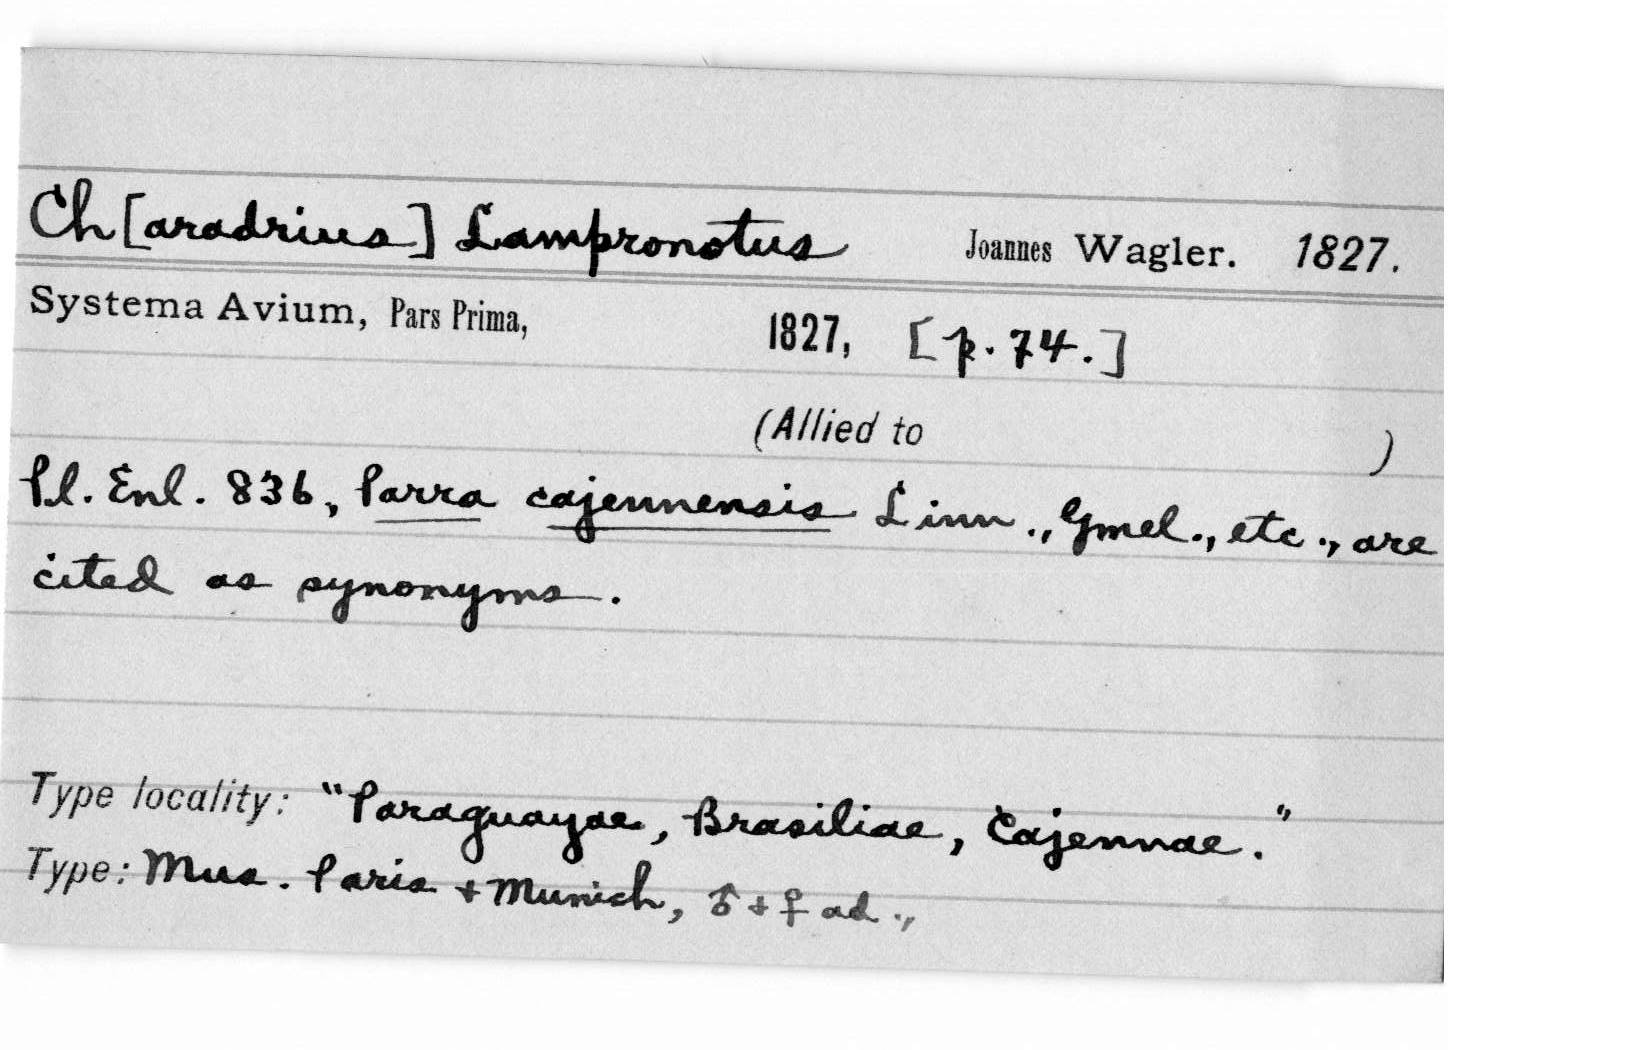 Ch[aradrius] Lampronotus Joannes Wagler. 1827.
Systema Avium, Pars Prima, 1827, [p. 74.]
(Allied to )
Pl. Enl. 836, Parra cajennensis Linn., Gmel., etc., are
cited as synonyms.
Type locality: "Paraguayae, Brasiliae, Cajennae."
Type: Mus. Paris + Munich, ♂ + ♀ ad.,